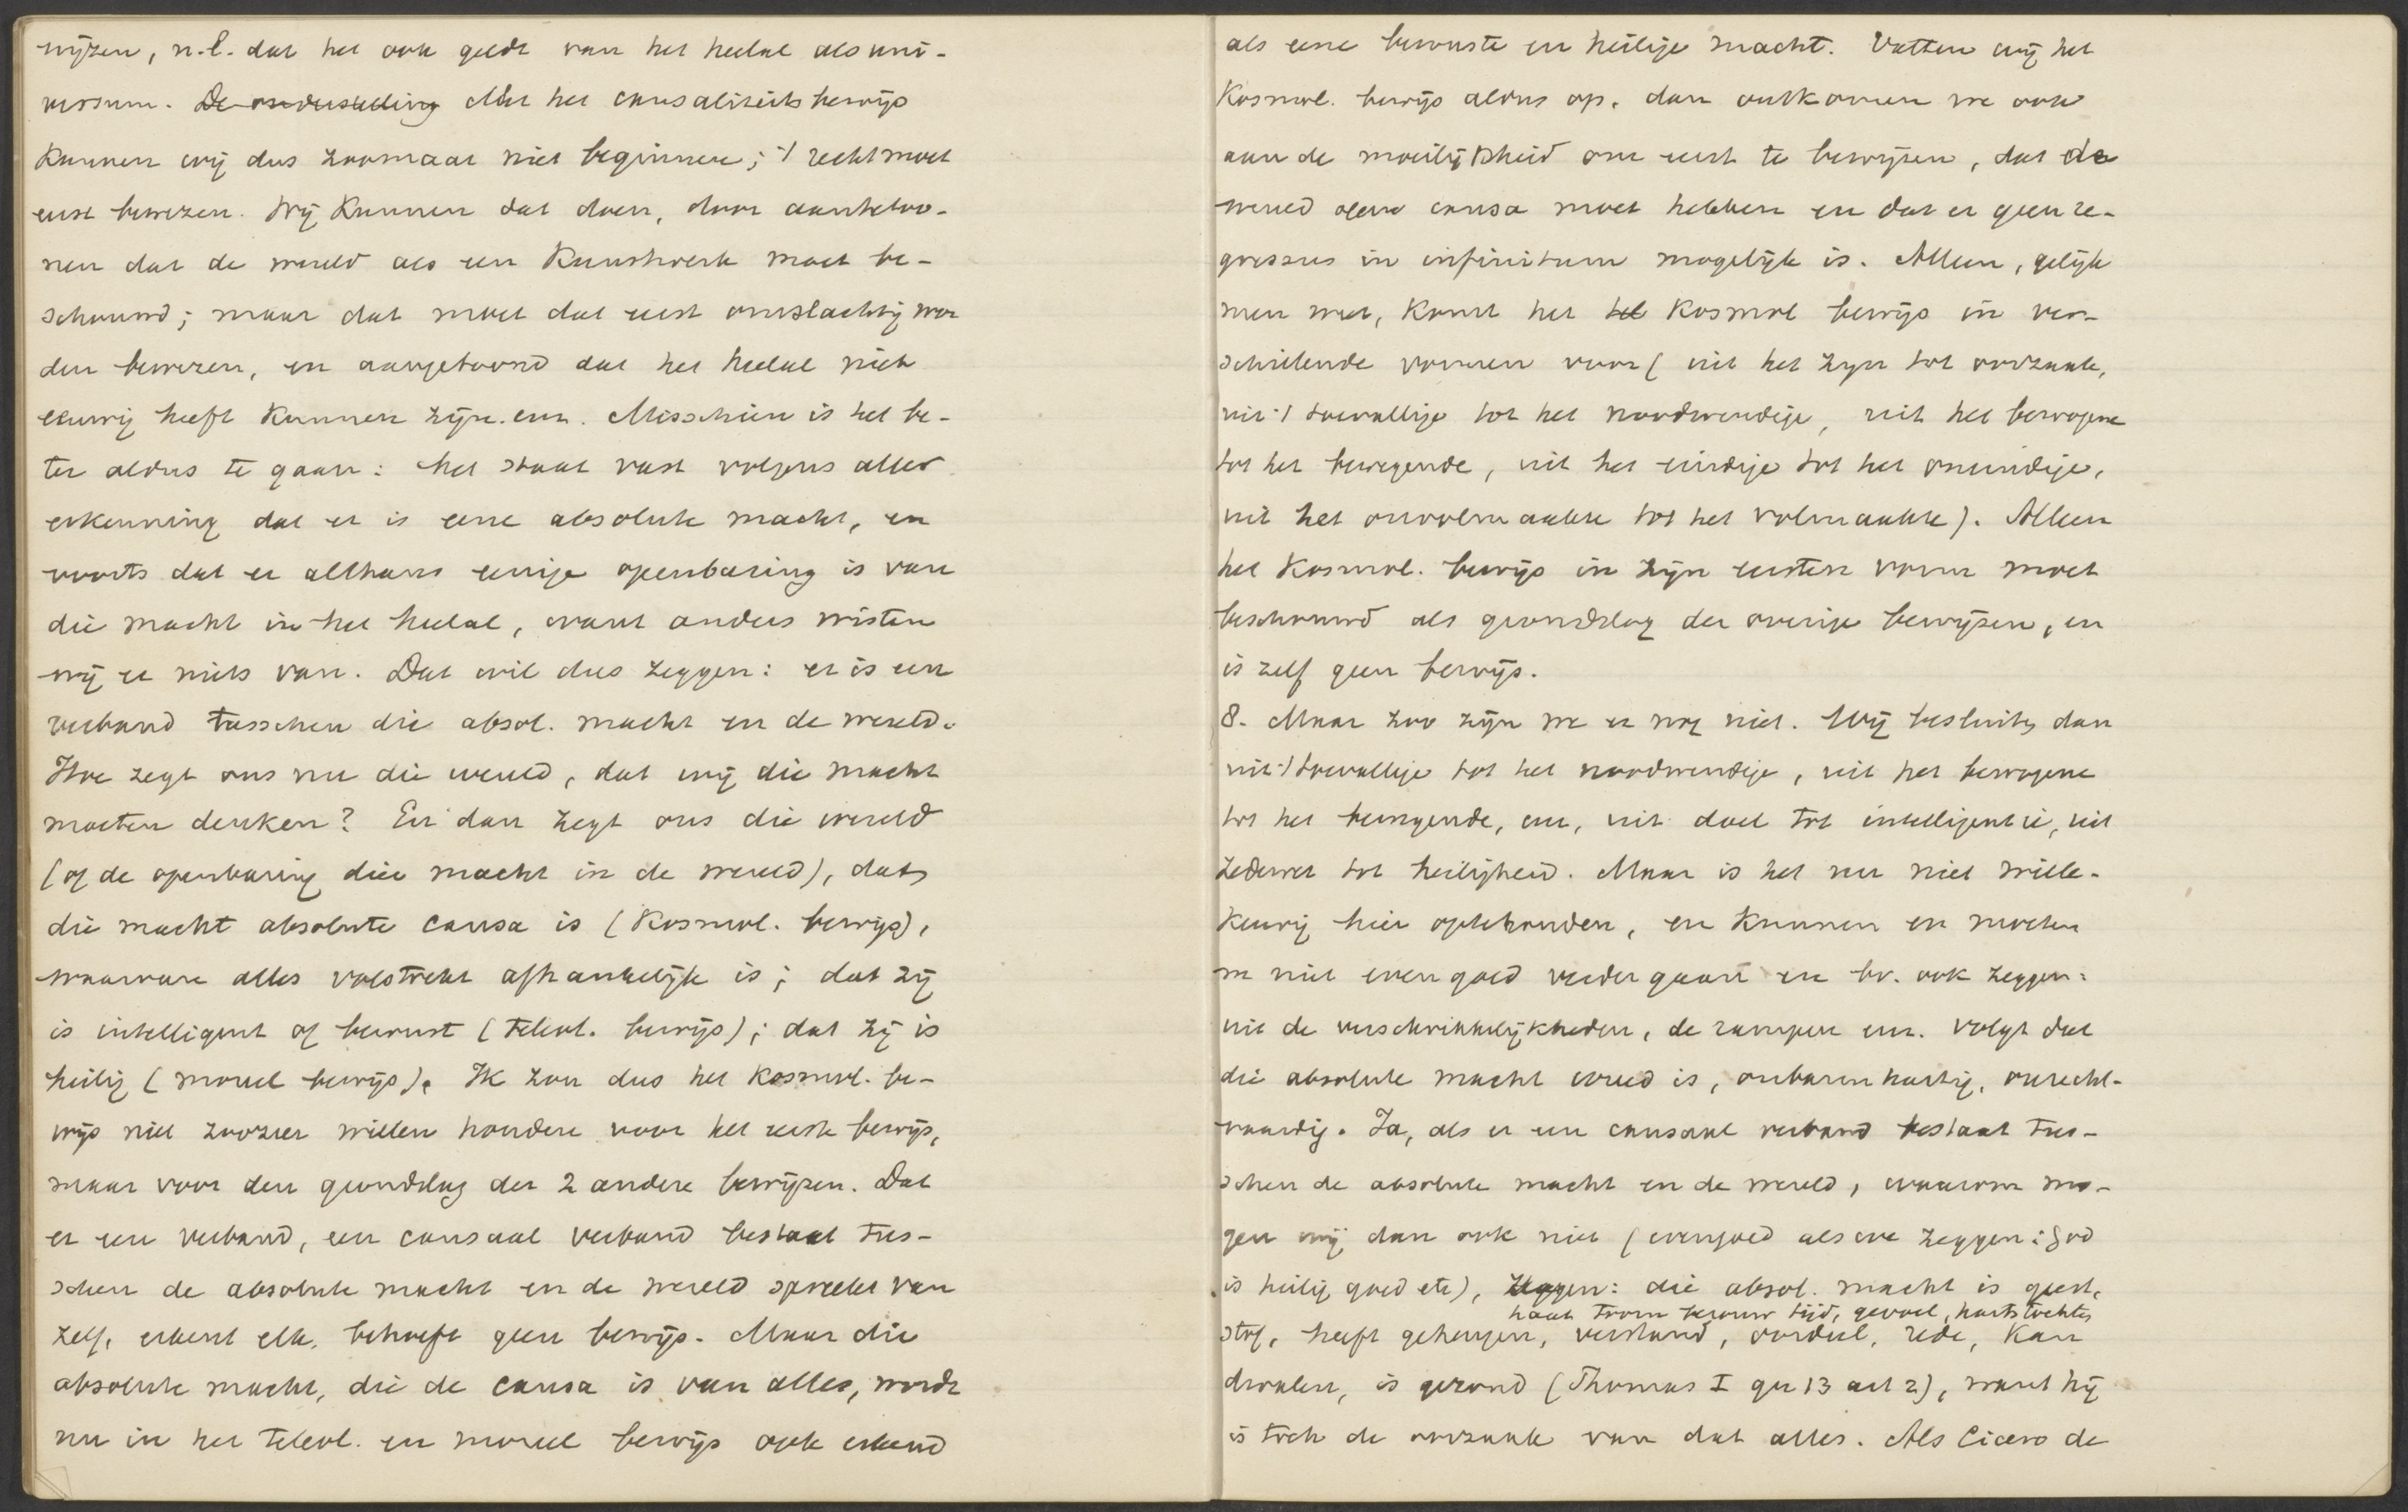 wijzen, n.l. dat het ook geldt van het heelal als uni-
versum. De onderstelling Met het causaliteitsbewijs
kunnen wij dus zoomaar niet beginnen; 't recht moet
eerst bewezen. Wij kunnen dat doen, door aantetoo-
nen dat de wereld als een kunstwerk moet be-
schouwd; maar dat moet dat eerst omslachtig wor
den bewezen, en aangetoond dat het heelal niet
eeuwig heeft kunnen zijn. enz. Misschien is het be-
ter aldus te gaan: het staat vast volgens aller
erkenning dat er is eene absolute macht, en
voorts dat er althans eenige openbaring is van
die macht in het heelal, want anders wisten
wij er niets van. Dat wil dus zeggen: er is een
verband tusschen die absol. macht en de wereld.
Hoe zegt ons nu die wereld, dat wij die macht
moeten denken? En dan zegt ons die wereld
(of de openbaring dier macht in de wereld), dat
die macht absolute causa is (Kosmol. bewijs),
waarvan alles volstrekt afhankelijk is; dat zij
is intelligent of bewust (teleol. bewijs); dat zij is
heilig (moreel bewijs). Ik zou dus het kosmol. be-
wijs niet zoozeer willen houden voor het eerste bewijs,
maar voor den grondslag der 2 andere bewijzen. Dat
er een verband, een causaal verband bestaat tus-
schen de absolute macht en de wereld spreekt van
zelf, erkent elk, behoeft geen bewijs. Maar die
absolute macht, die de causa is van alles, wordt
nu in het teleol. en moreel bewijs ook erkend
als eene bewuste en heilige macht. Vatten wij het
Kosmol. bewijs aldus op, dan ontkomen we ook
aan de moeilijkheid om eerst te bewijzen, dat de
wereld eene causa moet hebben en dat er geen re-
gressus in infinitum mogelijk is. Alleen, gelijk
men weet, komt het het kosmol bewijs in ver-
schillende vormen voor (uit het zijn tot oorzaak,
uit 't toevallige tot het noodwendige, uit het bewogene
tot het bewegende, uit het eindige tot het oneindige,
uit het onvolmaakte tot het volmaakte). Alleen
het Kosmol. bewijs in zijn eersten vorm moet
beschouwd als grondslag der overige bewijzen, en
is zelf geen bewijs.
8. Maar zoo zijn we er nog niet. Wij besluiten dan
uit 't toevallige tot het noodwendige, uit het bewogene
tot het bewegende, enz, uit doel tot intelligentie, uit
zedewet tot heiligheid. Maar is het nu niet wille-
keurig hier optehouden, en kunnen en moeten
we niet even goed verder gaan en bv. ook zeggen:
uit de verschrikkelijkheden, de rampen enz. volgt dat
die absolute macht wreed is, onbarmhartig, onrecht-
vaardig. Ja, als er een causaal verband bestaat tus-
schen de absolute macht en de wereld, waarom mo-
gen wij dan ook niet (evengoed als we zeggen: God
is heilig goed etc), zeggen: die absol. macht is geest,
haat toorn berouw tijd, gevoel, hartstochten
stof, heeft geheugen, verstand, oordeel, rede, kan
dwalen, is gezond (Thomas I qu 13 art 2), want hij
is toch de oorzaak van dat alles. Als Cicero de